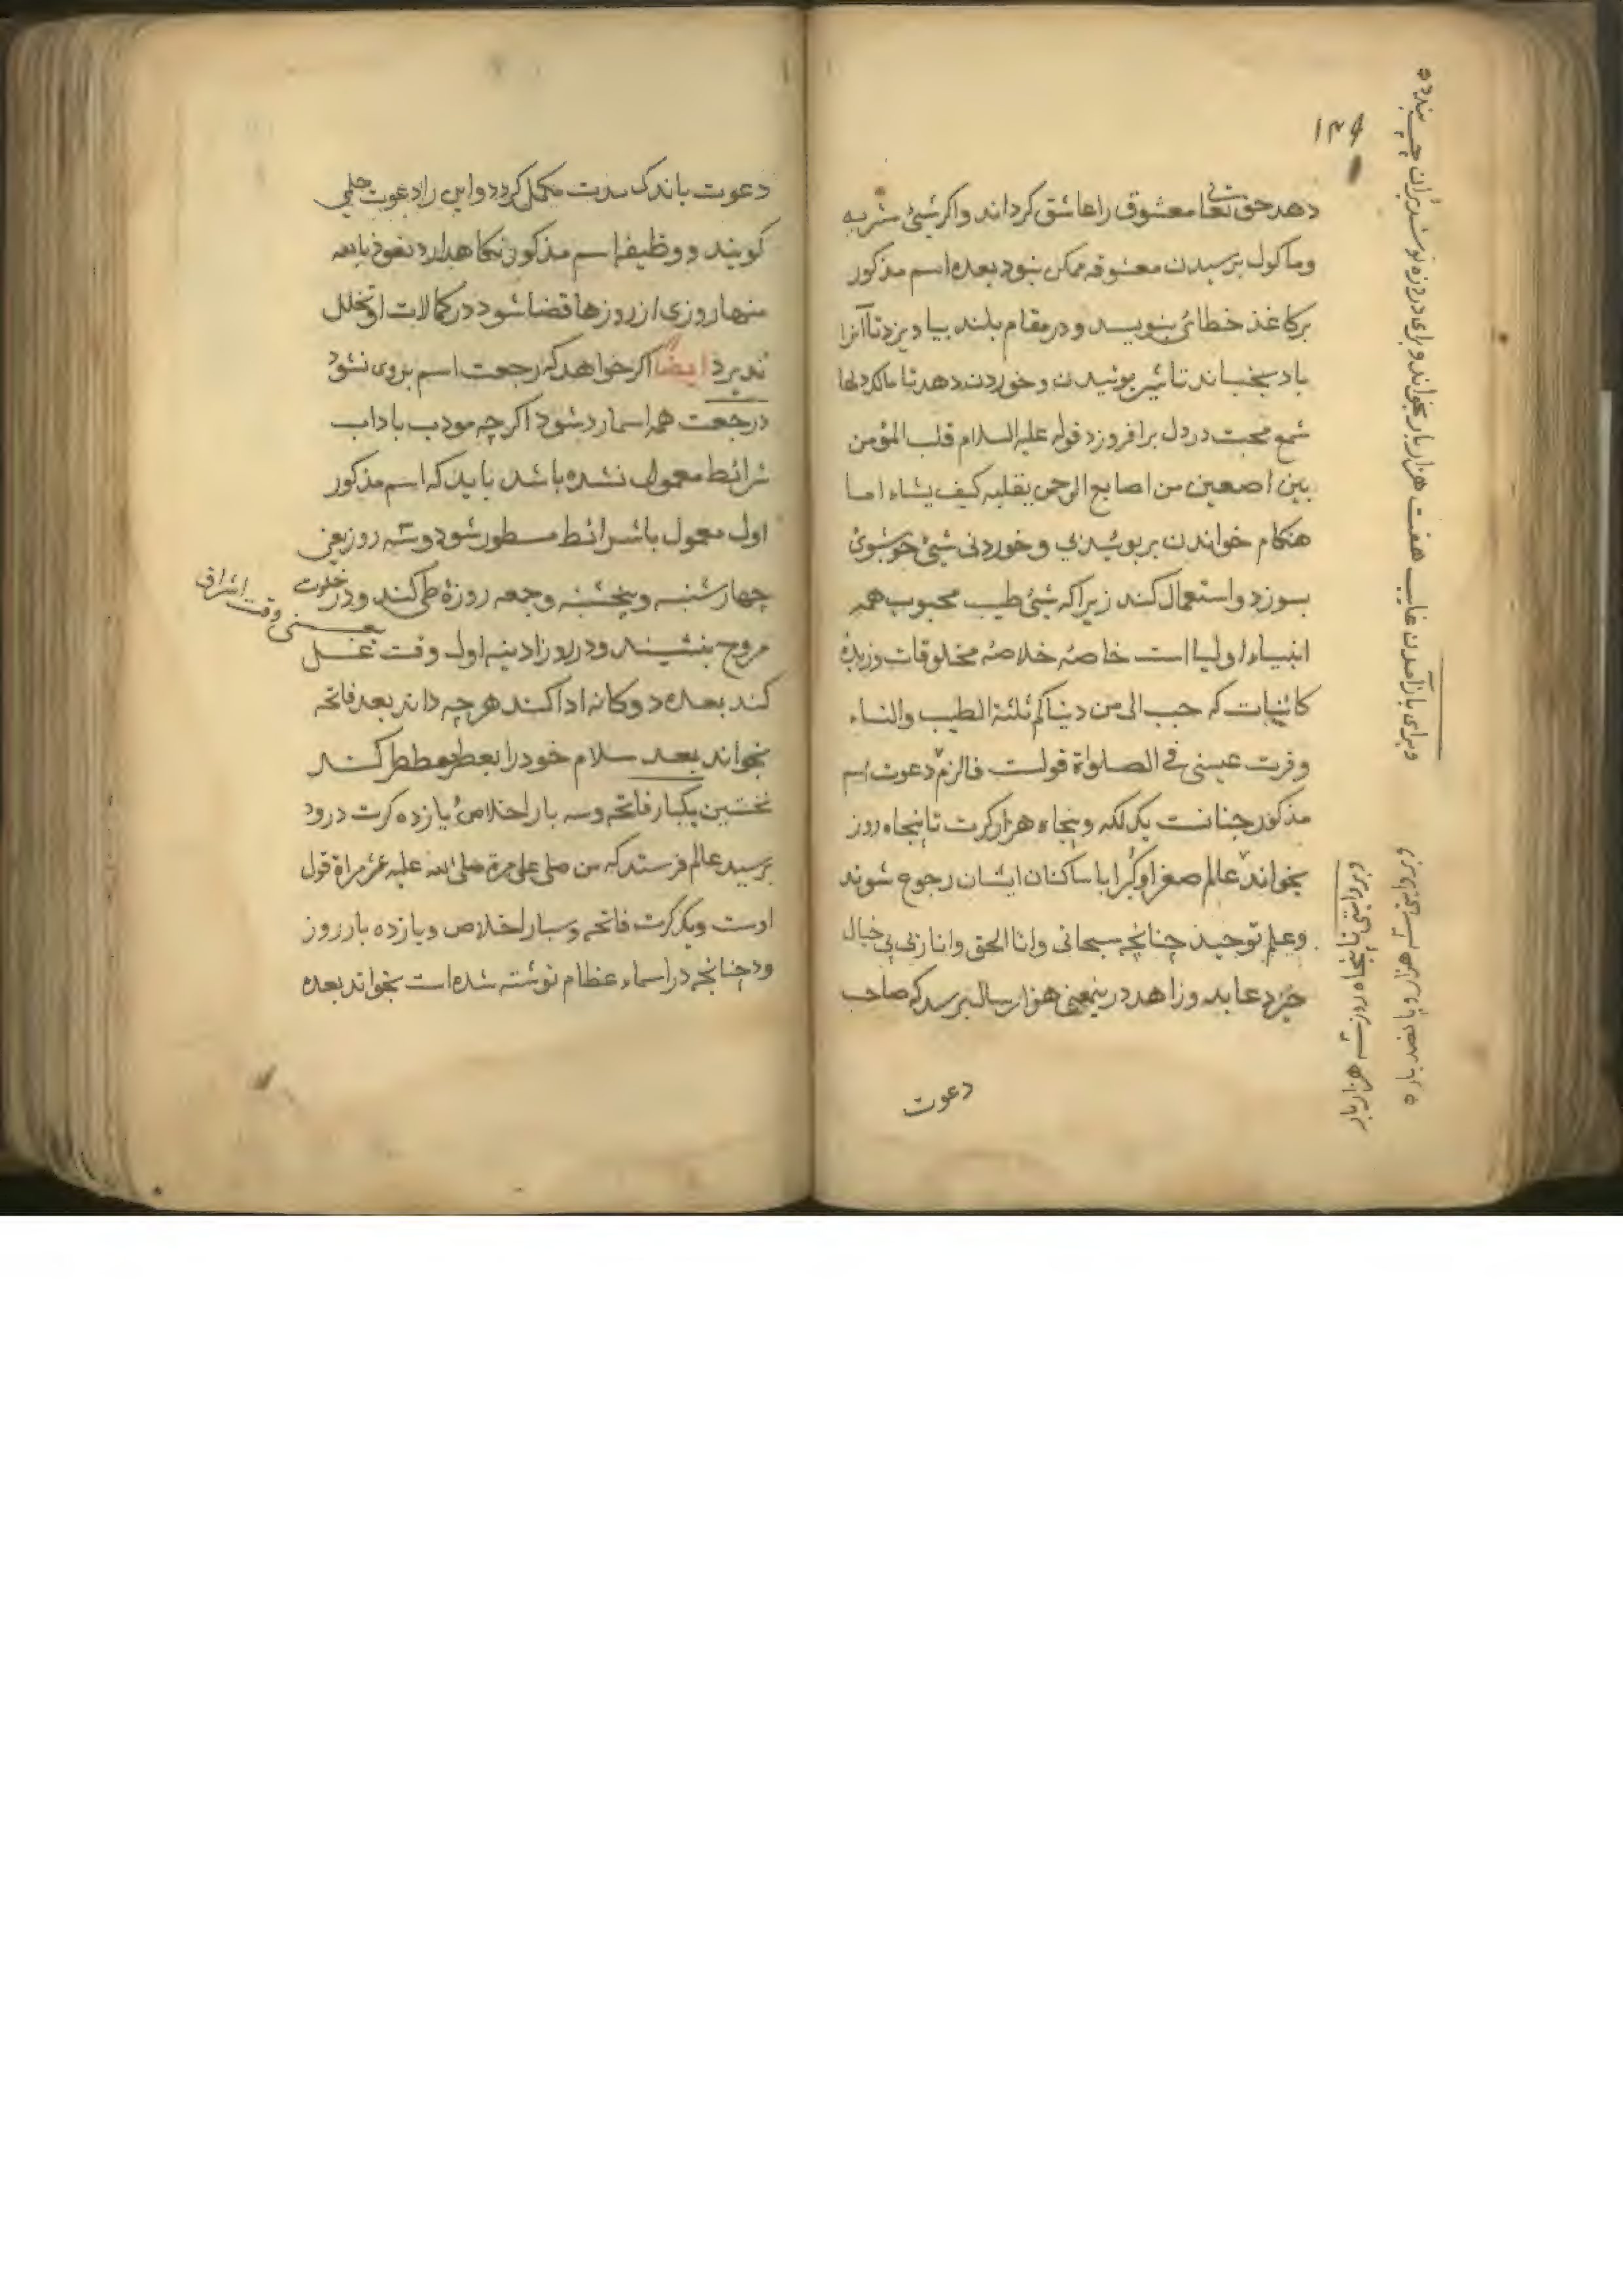 ۱۴۹
دهد حق تعالی معشوق را عاشق کرداند واکر شیٔ مشربه
وماکول برسیدن معشوقه ممکن نبود بعده اسم مذکور
برکاغذ خطائی بنویسد و درمقام بلند بیاویزد تا آنرا
باد بجنباند تاثیر بوئیدن و خوردن دهد تا مالک دلها
شمع محبت در دل برافروزد قوله علیه السلام قلب المؤمن
بین اصعین من اصابع الرحمن یقلبه کیف یشاء اما
هنکام خواندن بر بوئیدنی و خوردنی شیٔ خوشبوی
بسوزد واستعمال کند زیراکه شیٔ طیب محبوب همه
انبیاء اولیا است خاصه خلاصه مخلوقات وزبدهٔ
کائنات که حبب الی من دنیاکم ثلثة الطیب والنساء
وقرت عینی فی الصلواة قولست فالزم دعوت اسم
مذکور چنانست یک لکه وپنجاه هزار کرت تا پنجاه روز
بخواند عالم صغرا وکبرا با ساکنان ایشان رجوع شوند
وعلم توحید چنانچه سبحانی وانا الحق وانا ربی بی خیال
خیزد عابد وزاهد درینمعنی هزار سال نرسد که صاحب
دعوت
وبرای بازآمدن غایب هفت هزار بار بخواند وبرای درد زه نوشته بران چپ بندد
وبروایتی سه هزار و پانصد بار
وبروایتی تا پنجاه روز سه هزار بار
دعوت باندک مدت مکمل کردد واین را دعوت جلی
کویند و وظیفه اسم مذکور نکاهدارد نعوذ بالله
منها روزی از روزها قضا شود در کمالات او تخلل
پذیرد ایضا اکر خواهد که رجعت اسم بروی نشود
درجعت همه اسما رد شود اکرچه مودب باداب
شرائط معمول نشده باشد باید که اسم مذکور
اول معمول باشرائط مسطور شود وسه روز یعنی
چهارشنبه وپنجشنبه وجمعه روزهٔ طی کند ودر خلوت
مروح بنشیند ودر روز ادینه اول وقت غسل
یعنی وقت اشراق
کند بعده دوکانه ادا کند هرچه داند بعد فاتحه
بخواند بعد سلام خود را بعطر معطر کند
نخستین یکبار فاتحه وسه بار اخلاص یازده کرت درود
برسید عالم فرستد که من صلی علی مرة صلی الله علیه عشر مراة قول
اوست ویک کرت فاتحه وسبار اخلاص ویازده بار روز
ود چنانچه در اسماء عظام نوشته شده است بخواند بعده